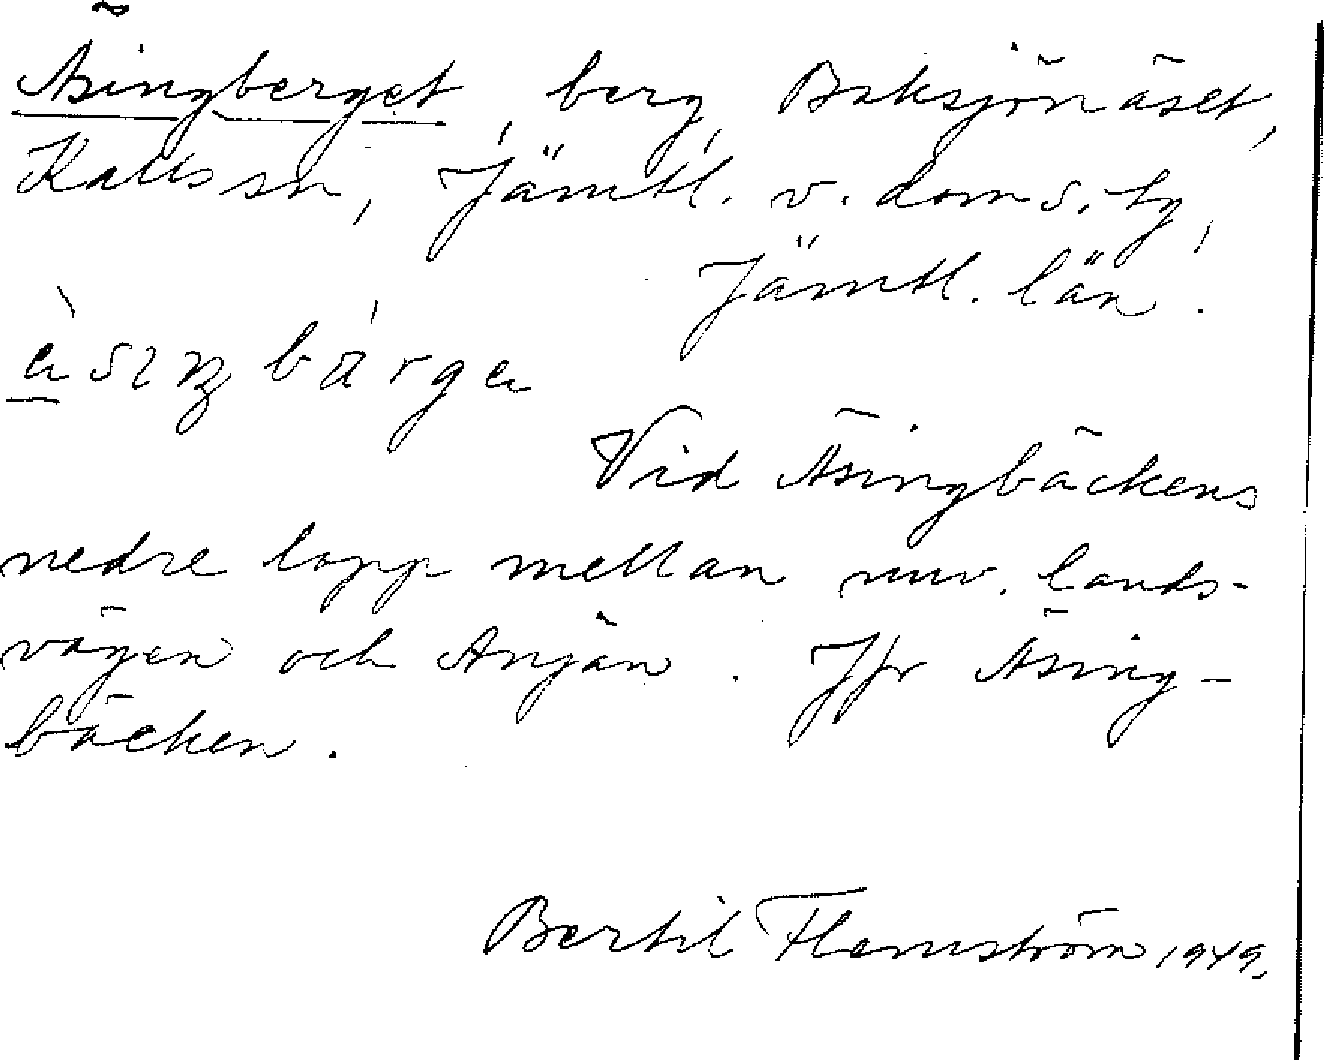 Äsingberget, berg, Baksjönäset,
Kalls sn, Jämtl. v. doms. tg,
Jämtl. län.
Vid Äsingbäckens
nedre lopp mellan nuv. lands-
vägen och Anjan. Jfr Äsing-
bäcken.
Bertil Flemström 1949.